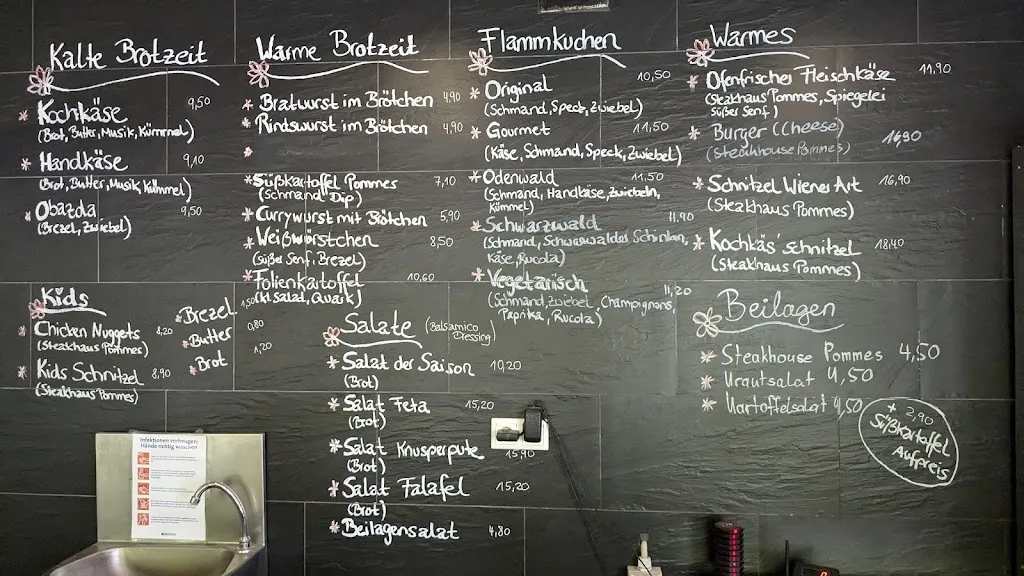 Kalte Brotzeit
Kochkäse 9,50
(Brot, Butter, Musik, Kümmel)
Handkäse 9,10
(Brot, Butter, Musik, Kümmel)
Obazda 9,50
(Brezel, Zwiebel)
Kids
Chicken Nuggets 4,20
(Steakhaus Pommes)
Kids Schnitzel 8,90
(Steakhaus Pommes)
Brezel 1,50
Butter 0,80
Brot 1,20
Warme Brotzeit
Bratwurst im Brötchen 4,90
Rindswurst im Brötchen 4,90
Süßkartoffel Pommes 7,10
(Schmand Dip)
Currywurst mit Brötchen 5,90
Weißwürstchen 8,50
(Süßer Senf, Brezel)
Folienkartoffel 10,60
(kl. Salat, Quark)
Salate (Balsamico
Dressing)
Salat der Saison 10,20
(Brot)
Salat Feta 15,20
(Brot)
Salat Knusperpute 15,90
(Brot)
Salat Falafel 15,20
(Brot)
Beilagensalat 4,80
Flammkuchen
Original 10,50
(Schmand, Speck, Zwiebel)
Gourmet 11,50
(Käse, Schmand, Speck, Zwiebel)
Odenwald 11,50
(Schmand, Handkäse, Zwiebeln,
Kümmel)
Schwarzwald 11,90
(Schmand, Schwarzwälder Schinken,
Käse, Rucola)
Vegetarisch 11,20
(Schmand, Zwiebel, Champignons,
Paprika, Rucola)
Warmes
Ofenfrischer Fleischkäse 11,90
(Steakhaus Pommes, Spiegelei
süßer Senf)
Burger ((Cheese) 14,90
(Steakhouse Pommes)
Schnitzel Wiener Art 16,90
(Steakhaus Pommes)
Kochkäs'schnitzel 18,40
(Steakhaus Pommes)
Beilagen
Steakhouse Pommes 4,50
Krautsalat 4,50
Kartoffelsalat 4,50
+ 2,90
Süßkartoffel
Aufpreis
Infektionen vorbeugen:
Hände richtig waschen!